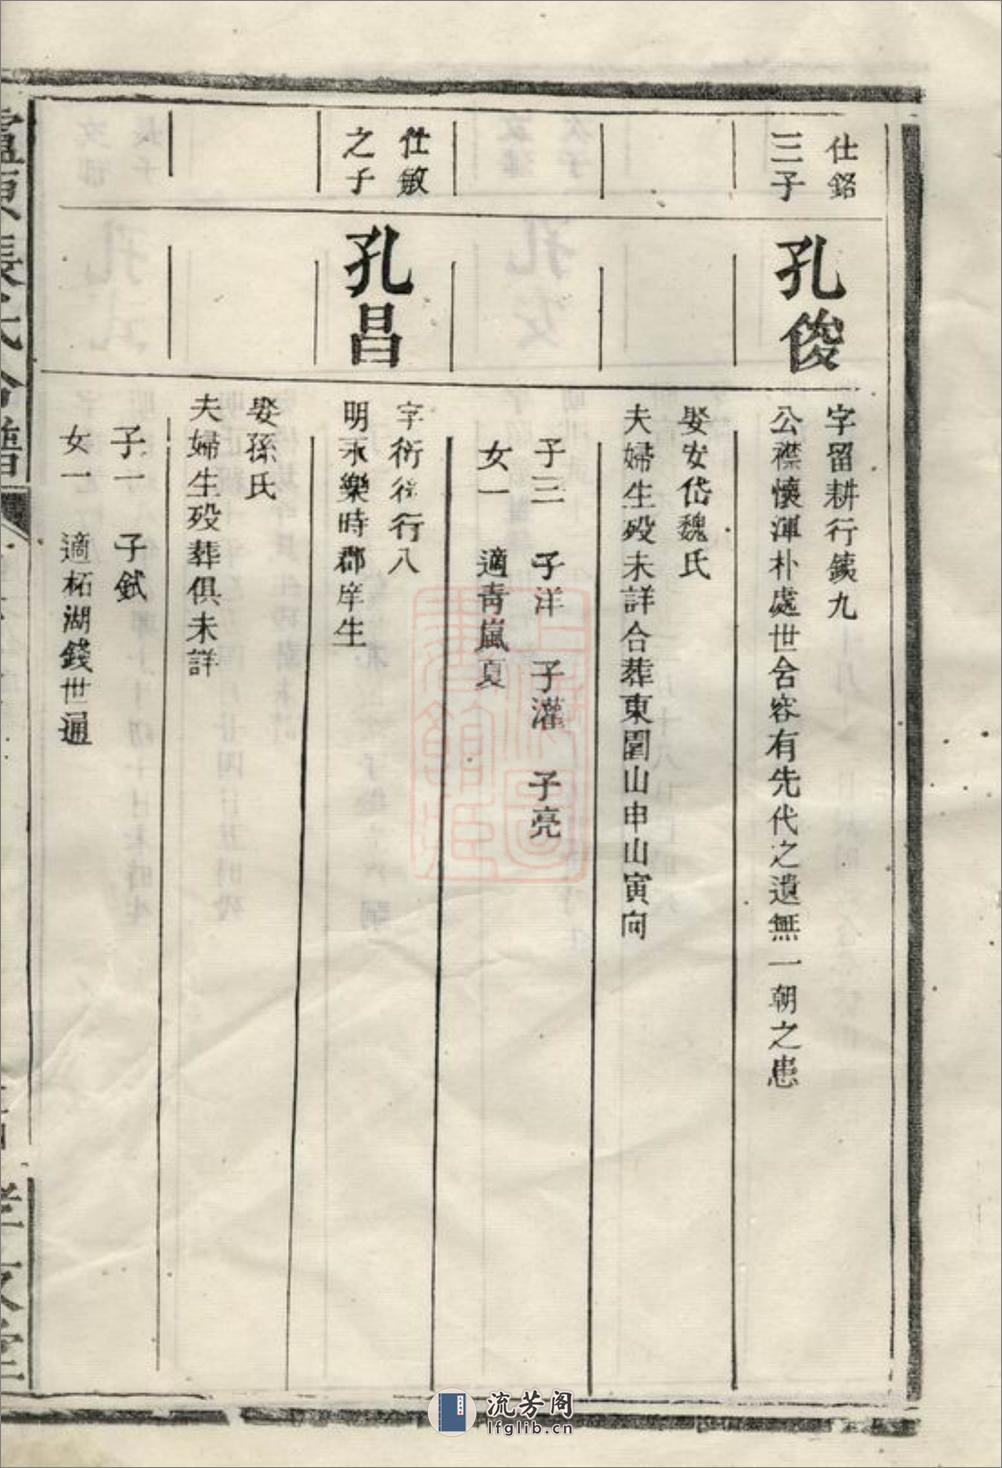 仕銘
三子
孔俊
字留耕行銕九
公襟懷渾朴處世含容有先代之遺無一朝之患
娶安岱魏氏
夫婦生歿未詳合葬東圍山申山寅向
子三 子洋 子灌 子亮
女一 適青嵐夏
仕敏
之子
孔昌
字衍 行八
明永樂時郡庠生
娶孫氏
夫婦生歿葬俱未詳
子一 子鉽
女一 適柘湖錢世通
張氏合譜
流芳阁
lfglib.cn